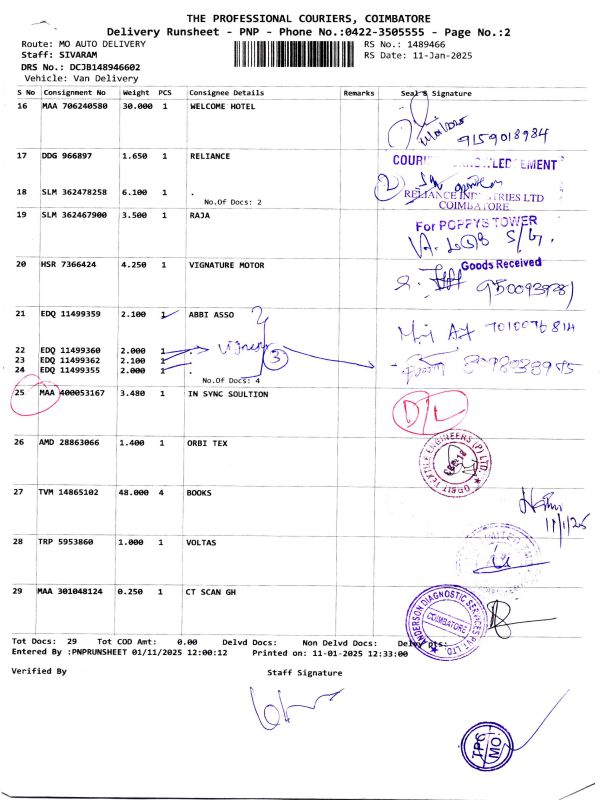 THE PROFESSIONAL COURIERS, COIMBATORE
Delivery Runsheet - PNP - Phone No.:0422-3505555 - Page No.:2
Route: MO AUTO DELIVERY RS No.: 1489466
Staff: SIVARAM RS Date: 11-Jan-2025
DRS No.: DCJB148946602
Vehicle: Van Delivery
S No Consignment No Weight PCS Consignee Details Remarks Seal & Signature
16 MAA 706240580 30.000 1 WELCOME HOTEL
9159018984
17 DDG 966897 1.650 1 RELIANCE
18 SLM 362478258 6.100 1 .
RELIANCE INDUSTRIES LTD
No.Of Docs: 2
COIMBATORE
19 SLM 362467900 3.500 1 RAJA
For POPPYS TOWER
20 HSR 7366424 4.250 1 VIGNATURE MOTOR
Goods Received
21 EDQ 11499359 2.100 1 ABBI ASSO
22 EDQ 11499360 2.000 1 .
23 EDQ 11499362 2.100 1 .
3
24 EDQ 11499355 2.000 1 .
No.Of Docs: 4
25 MAA 400053167 3.480 1 IN SYNC SOULTION
D/L
26 AMD 28863066 1.400 1 ORBI TEX
ORBIT TEXTILE ENGINEERS (P) LTD.
27 TVM 14865102 48.000 4 BOOKS
11/1/25
28 TRP 5953860 1.000 1 VOLTAS
29 MAA 301048124 0.250 1 CT SCAN GH
ANDERSON DIAGNOSTIC SERVICES PVT LTD.
COIMBATORE
Tot Docs: 29 Tot COD Amt: 0.00 Delvd Docs: Non Delvd Docs:
Entered By :PNPRUNSHEET 01/11/2025 12:00:12 Printed on: 11-01-2025 12:33:00
Verified By Staff Signature
TPC
MO